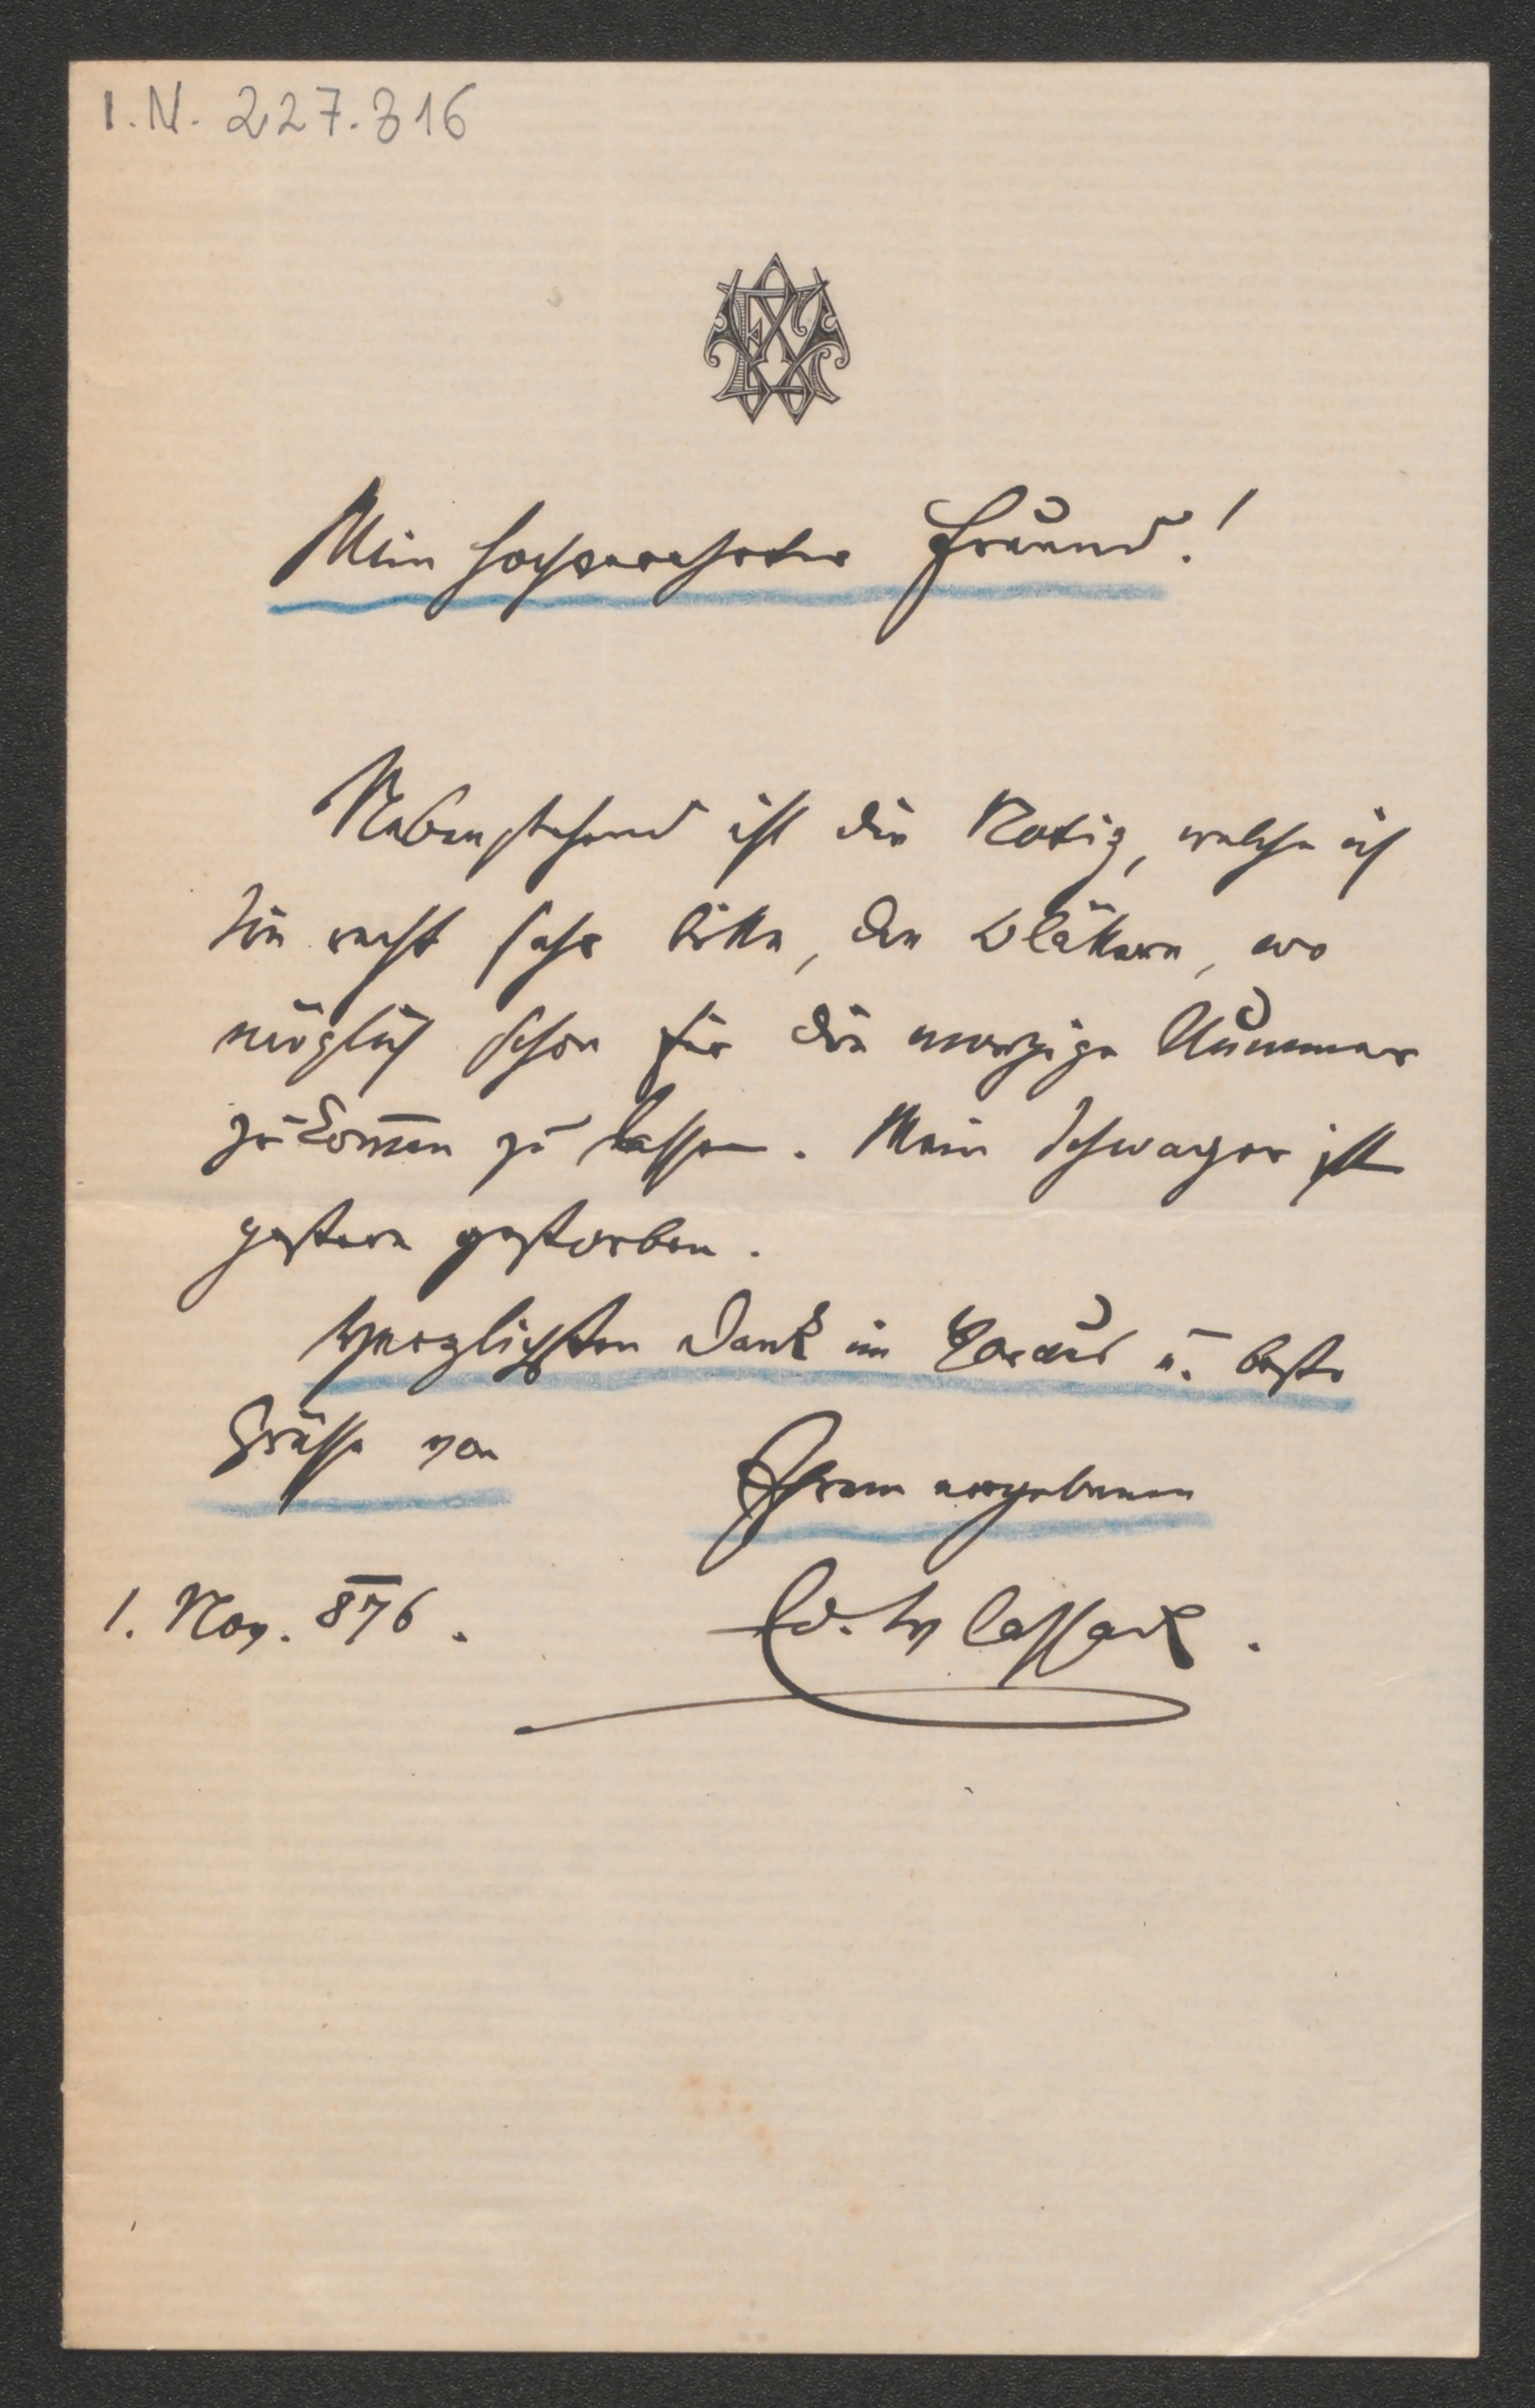 I.N. 227.316
Mein hochverehrter Freund!
Nebenstehend ist die Notiz, welche ich
Sie recht sehr bitte, den Blättern, wo
möglich schon für die morgige Nummer
zukom̅en zu lassen. Mein Schwager ist
gestern gestorben.
Herzlichsten Dank im Voraus u. beste
Grüsse von
Ihrem ergebenen
1. Nov. 876.
Ed. Wlassack.